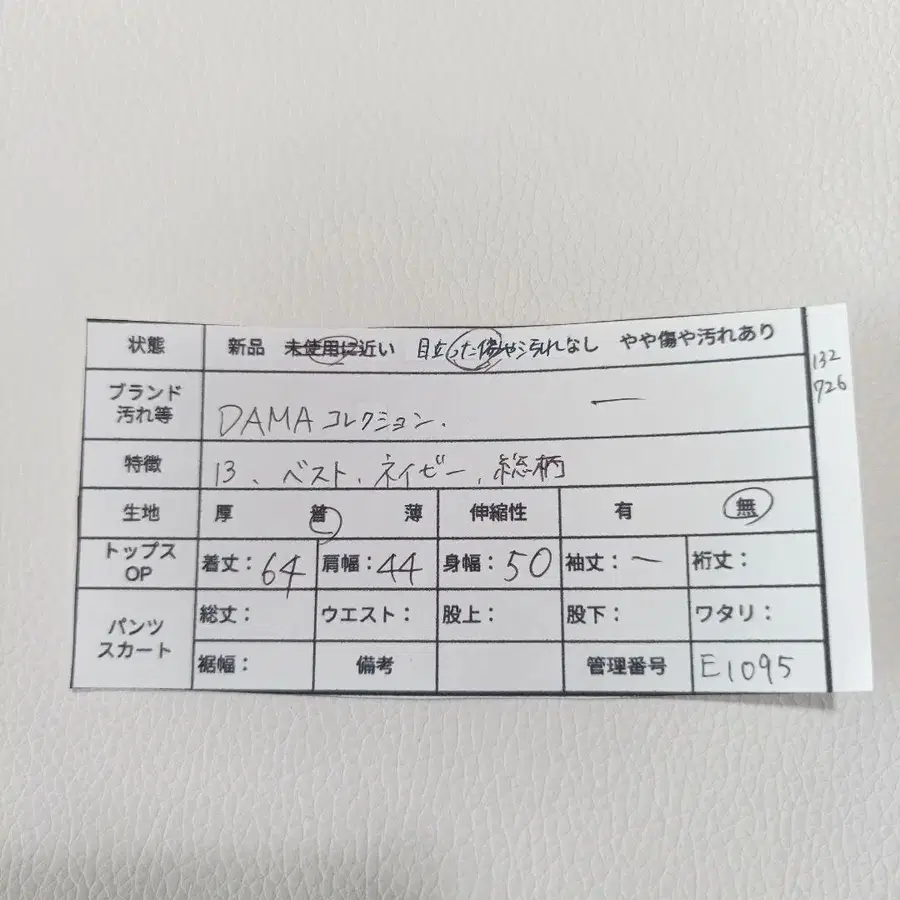 状態 新品 未使用に近い 目立った傷や汚れなし やや傷や汚れあり
132
726
ブランド
汚れ等
DAMA コレクション. ー
特徴 13、ベスト、ネイビー、総柄
生地 厚 普 薄 伸縮性 有 無
トップス
OP
着丈：64 肩幅：44 身幅：50 袖丈：ー 裄丈：
パンツ
スカート
総丈： ウエスト： 股上： 股下： ワタリ：
裾幅： 備考 管理番号 E1095